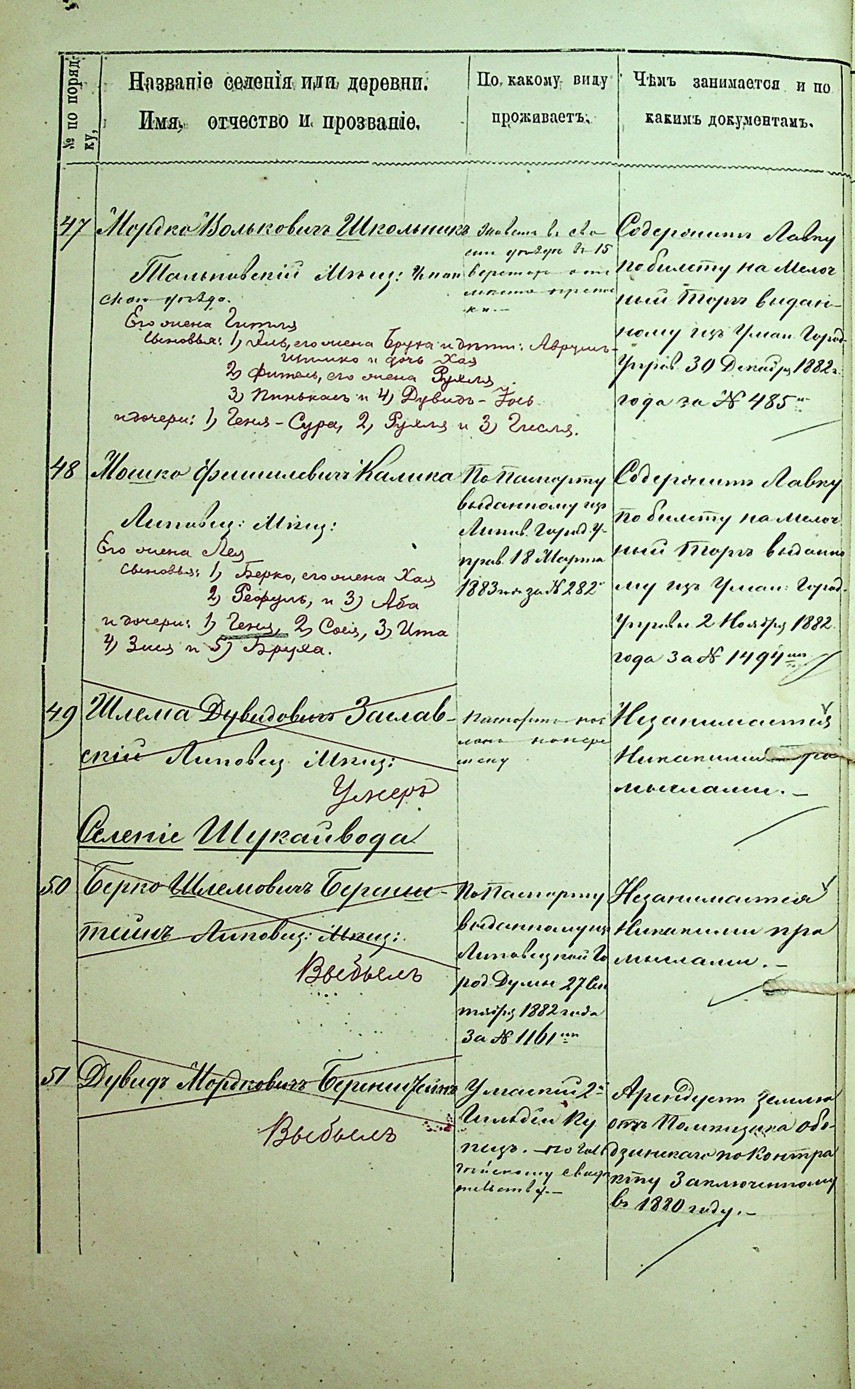 № по поряд-
ку,
Названіе селенія или деревни.
Имя, отчество и прозваніе.
По какому виду
проживаетъ.
Чѣмъ занимается и по
какимъ документамъ.
47
Мордко Вольковичъ Школьникъ
Тальновскій Мѣщ:
скаго уѣзда.
Его жена Гитля
сыновья: 1) Эль, его жена Бруха и дѣти: Аврумъ-
Шимко и дочь Хая
2) Фитель, его жена Рухля
3) Пинькасъ и 4) Дувидъ-Іось
и дочери: 1) Геня-Сура, 2) Рухля и 3) Гисля.
въ сво
емъ уѣздѣ въ 15
верстахъ отъ
мѣста
Содержитъ Лавку
по билету на Мелоч
ный Торгъ выдан-
ному изъ Уман. Город.
Управ. 30 Декабря 1882 г.
года за № 485
48
Мошко Фишилевичъ Калика
Липовец: Мѣщ:
Его жена Лея
сыновья: 1) Берко, его жена Хая
2) Рефуль, и 3) Аба
и дочери: 1) Геня, 2) Сося, 3) Ита
4) Зися и 5) Бруха.
По Паспорту
выданному изъ
Липов. Город. У-
прав. 18 Марта
1883 за № 282
Содержитъ Лавку
по билету на Мелоч
ный Торгъ выданно
му изъ Уман: Город.
Управы 2 Ноября 1882
года за № 1494
49
Шлема Дувидовичъ Заслав-
скій Липовец. Мѣщ:
Умеръ
Паспортъ пос
ланъ на пере
мѣну
Незанимается
Никакими про
мыслами.
Селеніе Шукайвода
50
Берко Шлемовичъ Бернш-
тейнъ Липовец: Мѣщ:
Выбылъ
По Паспорту
выданному изъ
Липовецкой Го
род Думы 27 Сен
тября 1882 года
за № 1161
Незанимается
Никакими про
мыслами.
51
Дувидъ Мордковичъ Бернштейнъ
Выбылъ
Уманскій 2й
Гильдіи Ку
пецъ.
свидѣ
тельству.
Арендуетъ землю
отъ Помѣщика
по Контра
кту Заключенному
въ 1880 году.